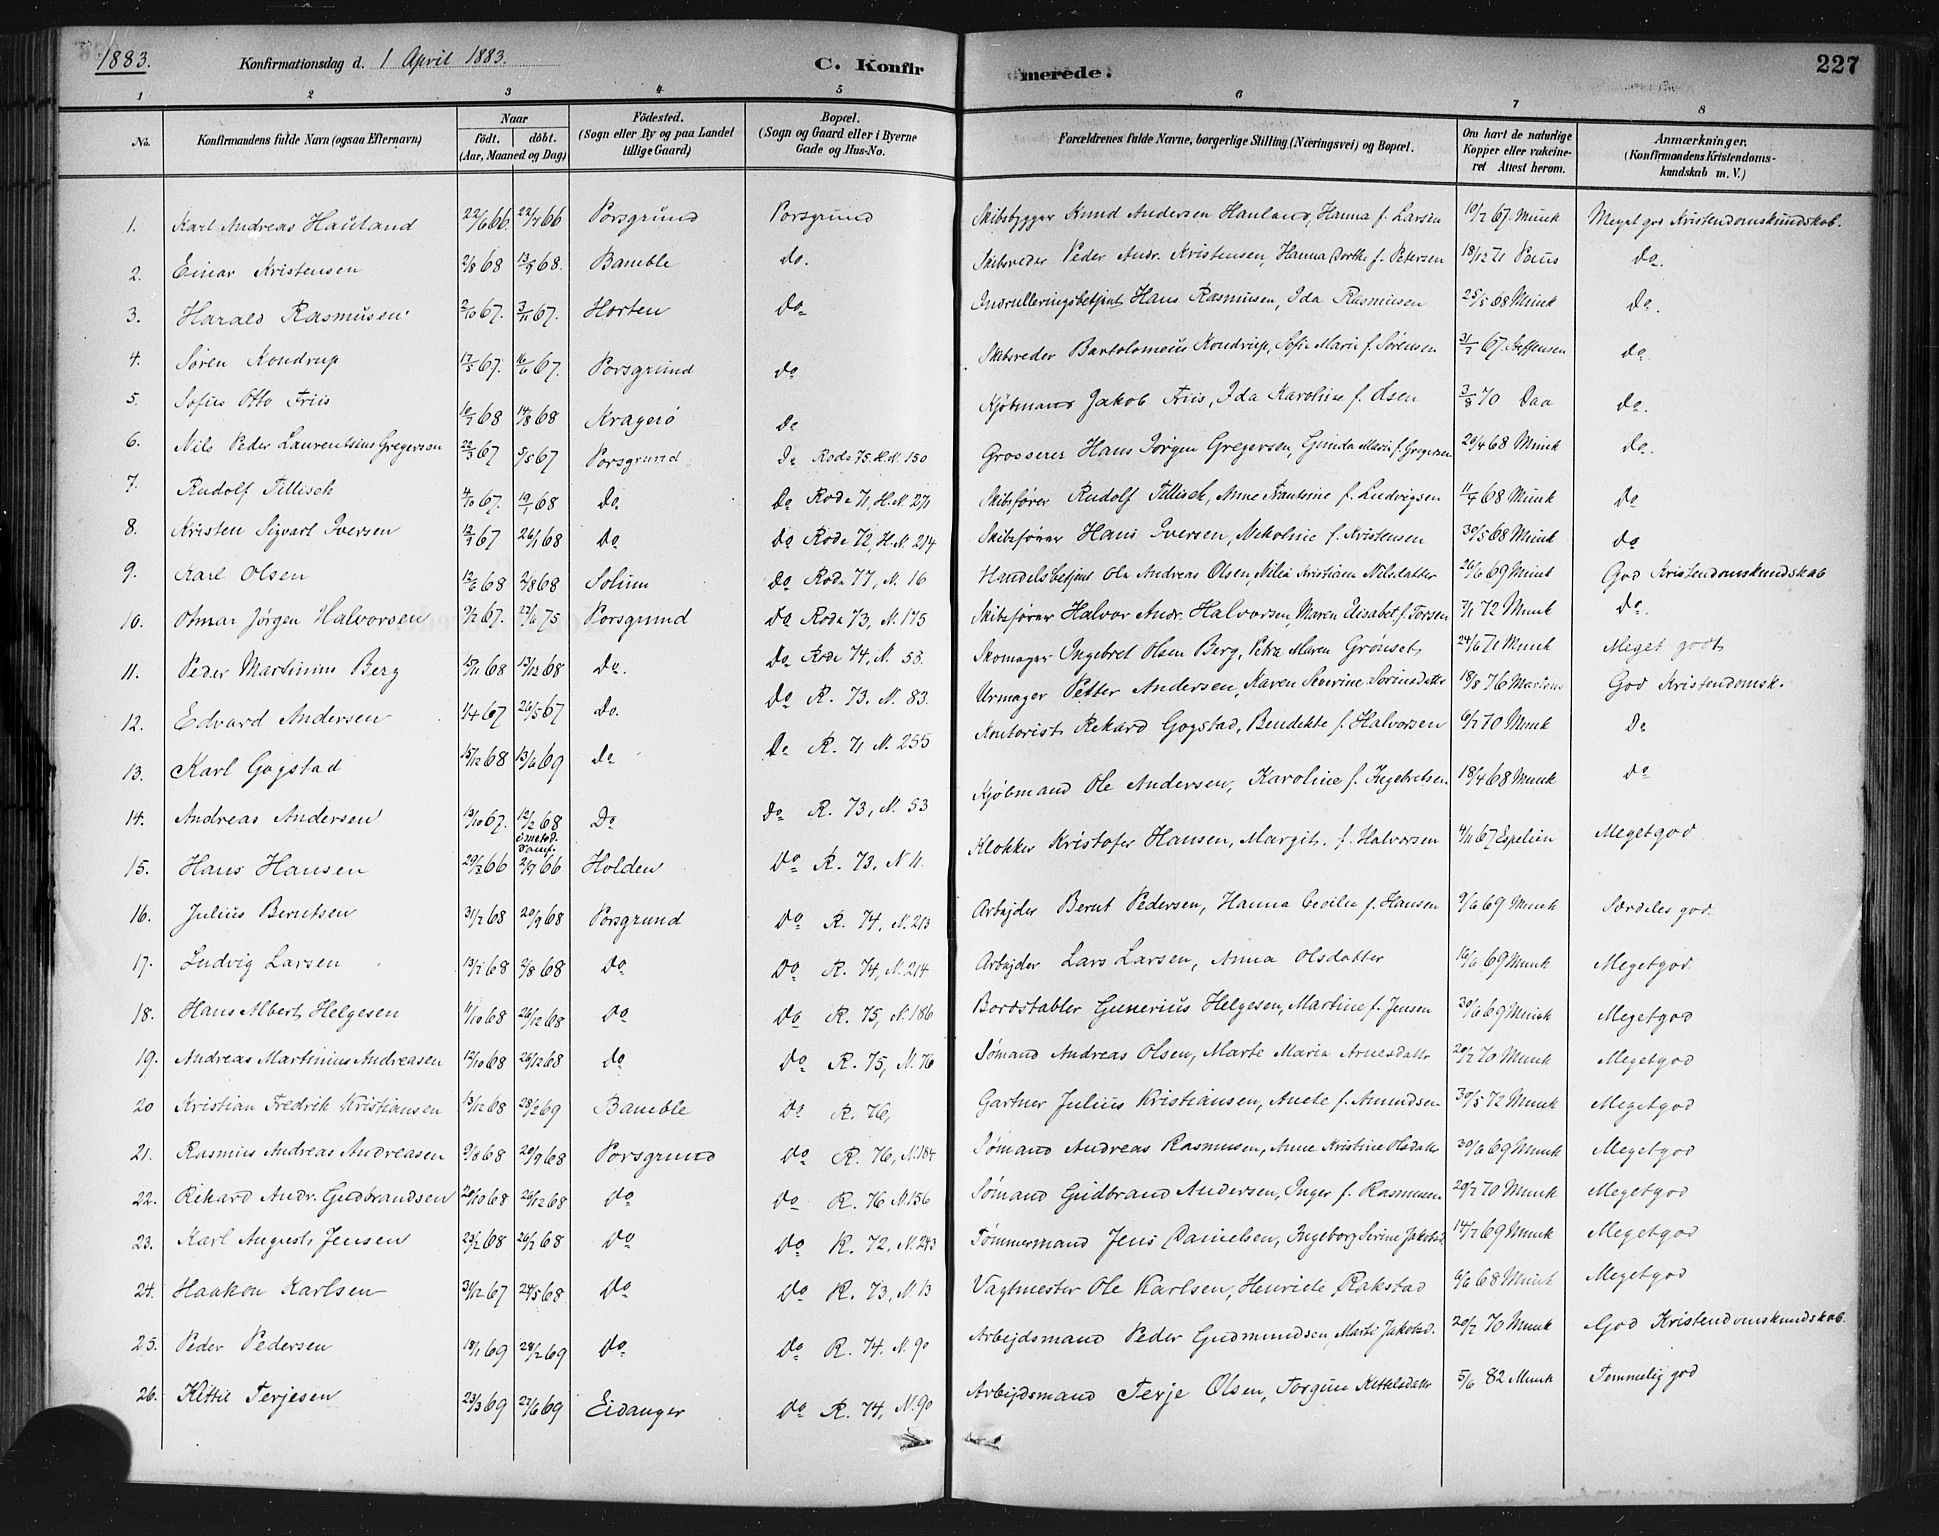 1883. Konfirmationsdag d. 1 April 1883. C. Konfirmerede. 227
1 2 3 4 5 6 7 8
No. Konfirmandens fulde Navn (ogsaa Efternavn) Naar født. døbt. (Aar, Maaned og Dag) Födested. (Sogn eller By og paa Landet tillige Gaard) Bopæl. (Sogn og Gaard eller i Byerne Gade og Hus-No. Forældrenes fulde Navne, borgerlige Stilling (Næringsvei) og Bopæl. Om havt de naturlige Kopper eller vakcineret Attest herom. Anmærkninger. (Konfirmandens Kristendomskundskab m. V.)
1. Karl Andreas Hauland 22/6 66. 22/7 66 Porsgrund Porsgrund Skibsbygger Knud Andersen Hauland, Hanna f. Larsen 10/7 67. Munk Meget god Kristendomskundskab.
2. Einar Kristensen 2/8 68 13/9 68. Bamble do. Skibsreder Peder Andr. Kristensen, Hanna Dorthe f. Petersen 18/12 71 Paus do.
3. Harald Rasmusen 2/10 67. 3/11 67. Horten do Indrulleringsbetjent Hans Rasmusen, Ida Rasmusen 25/5 68 Munk do.
4. Søren Kondrup 17/5 67. 16/6 67. Porsgrund do Skibsreder Bartolomeus Kondrup, Sofie Marie f. Sørensen 31/7 67. Steffensen do
5. Sofus Otto Friis 10/7 68 14/8 68 Kragerö do Kjøbmand Jakob Friis, Ida Karoline f. Olsen 3/8 70 Daa do.
6. Nils Peder Laurentsius Gregersen 22/3 67 5/5 67 Porsgrund do Rode 75. H.N. 150 Grosserer Hans Jørgen Gregersen, Gunda Maria f. Gregersen 20/4 68 Munk do.
7. Rudolf Tillisch 4/10 67. 19/1 68 do. do Rode 71, H.N. 271 Skibsfører Rudolf Tillisch, Anne Frantsine f. Ludvigsen 11/7 68 Munk do
8. Kristen Sigvart Iversen 12/9 67 26/1 68 do do Rode 72, H.N. 214 Skibsfører Hans Iversen, Nikoline f. Kristensen 30/5 68 Munk do
9. Karl Olsen 12/6 68 2/8 68 Solum do Rode 77, N. 16 Handelsbetjent Ole Andreas Olsen, Nilia Kristiane Nilsdatter 26/6 69 Munk God Kristendomskundskab
10. Otmar Jørgen Halvorsen 9/2 67. 27/6 75 Porsgrund do Rode 73, N. 175 Skibsfører Halvor Andr. Halvorsen, Maren Elisabet f. Torsen 7/1 72 Munk do.
11. Peder Martinius Berg 15/11 68 13/12 68 do. do Rode 74, N. 53. Skomager Ingebret Olsen Berg, Petra Maren Grønset 24/6 71 Munk Meget godt
12. Edvard Andersen 1/4 67 26/5 67 do. do R. 73. N. 83. Urmager Petter Andersen, Karen Severine Sørensdatter 18/8 76 Martens God Kristendomsk.
13. Karl Gogstad 15/12 68 13/6 69 do do R. 71 N. 255 Kontorist Rekard Gogstad, Bendikte f. Halvorsen 6/7 70 Munk do
14. Andreas Andersen 13/10 67. 12/2 68 do do R. 73, N. 53 Kjøbmand Ole Andersen, Karoline f. Ingebretsen 18/4 68 Munk do
15. Hans Hansen 29/3 66 2/9 66 Holden do R. 73. N 11. Klokker Kristofer Hansen, Margit f. Halvorsen 4/11 67 Espelien Meget god
16. Julius Berntsen 31/7 68 20/9 68 Porsgrund do R. 74, N. 213 Arbejder Bernt Pedersen, Hanna Cecilia f. Hansen 9/6 69 Munk Særdeles god.
17. Ludvig Larsen 13/7 68 2/8 68 do do R. 74, N. 214 Arbejder Lars Larsen, Anna Olsdatter 16/6 69 Munk Meget god
18. Hans Albert Helgesen 11/10 68 26/12 68 do do R. 75, N. 186 Bordstabler Gunerius Helgesen, Martine f. Jensen 30/6 69 Munk Meget god
19. Andreas Martinius Andreasen 12/10 68 26/12 68 do do R. 75, N. 76 Sømand Andreas Olsen, Marte Maria Arnesdatter 20/7 70 Munk Meget god
20 Kristian Fredrik Kristiansen 13/12 68 28/2 69 Bamble do R. 76, Gartner Julius Kristiansen, Anete f. Amundsen 30/5 72 Munk Meget god
21. Rasmus Andreas Andreasen 9/8 68 20/9 68 Porsgrund do R. 76, N. 184 Sømand Andreas Rasmusen, Anne Kristine Olsdatter 30/6 69 Munk Meget god
22. Rikard Andr. Gudbrandsen 20/10 68 26/12 68 do do R. 76 N. 156 Sømand Gudbrand Andersen, Inger f. Rasmusen 20/7 70 Munk Meget god
23. Karl August Jensen 23/2 68 26/7 68 do do R. 72, N. 243 Tømmermand Jens Danielsen, Ingeborg Serine Jakobsd. 14/7 69 Munk Meget god
24. Haakon Karlsen 31/12 67 24/5 68 do do R. 73, N. 13 Vagtmester Ole Karlsen, Henriete Rakstad 6/6 68 Munk Meget god
25. Peder Pedersen 18/1 69 28/2 69 do do R. 74. N. 90 Arbejdsmand Peder Gudmundsen, Marte Jakobsd. 20/7 70 Munk God Kristendomskundskab.
26. Kittil Terjesen 23/3 69 27/6 69 Eidanger do R. 74, N. 90 Arbejdsmand Terje Olsen, Torgun Kittelsdatter 5/6 82 Munk Temmelig god